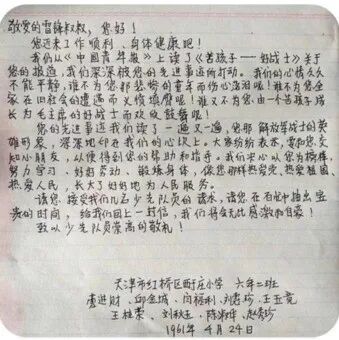 敬爱的雷锋叔叔，您好！
您近来工作顺利、身体健康吧！
我们从《中国青年报》上读了《苦孩子——好战士》关于
您的报道，我们深深被您的先进事迹所打动。我们的心情久久
不能平静，谁不为您那悲惨的童年而伤心落泪呢！谁不为您全
家在旧社会的遭遇而义愤填膺呢！谁又不为您，由一个苦孩子成
长为毛主席的好战士而欢欣鼓舞呢！
您的先进事迹我们读了一遍又一遍，您那解放军战士的英
雄形象，深深地印在我们的心坎上。大家纷纷表示，要和您交
知心朋友，以便得到您的帮助和指导。我们决心以您为榜样，
努力学习、好好劳动、锻炼身体，像您那样热爱党、热爱祖国
热爱人民，长大了好好地为人民服务。
请您接受我们几名少先队员的请求，请您在百忙中抽出宝
贵的时间，给我们回上一封信，我们将会无比感激和自豪！
致以少先队员崇高的敬礼！
天津市红桥区西于庄小学 六年二班
李进财、邱金城、闫福利、刘春珍、王玉竟
王桂荣、刘秋玉、陈淑萍、赵秀珍
1961年4月24日